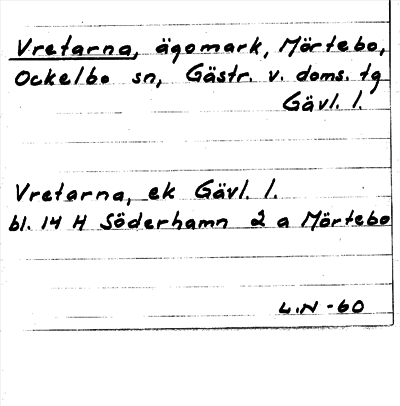 Vretarna, ägomark, Mörtebo,
Ockelbo sn, Gästr. v. doms. tg
Gävl. l.
Vretarna, ek Gävl. l.
bl. 14 H Söderhamn 2 a Mörtebo
L.N - 60